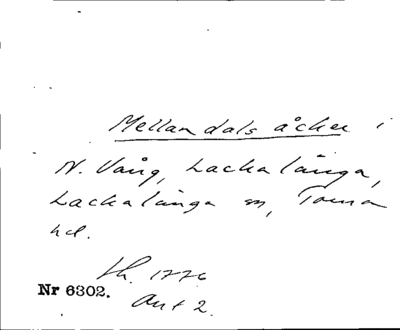 Mellandals åcker i
N. Vång, Lackalänga,
Lackalänga sn, Torna
hd.
Lh. 1776
Nr 6302.
Akt 2.